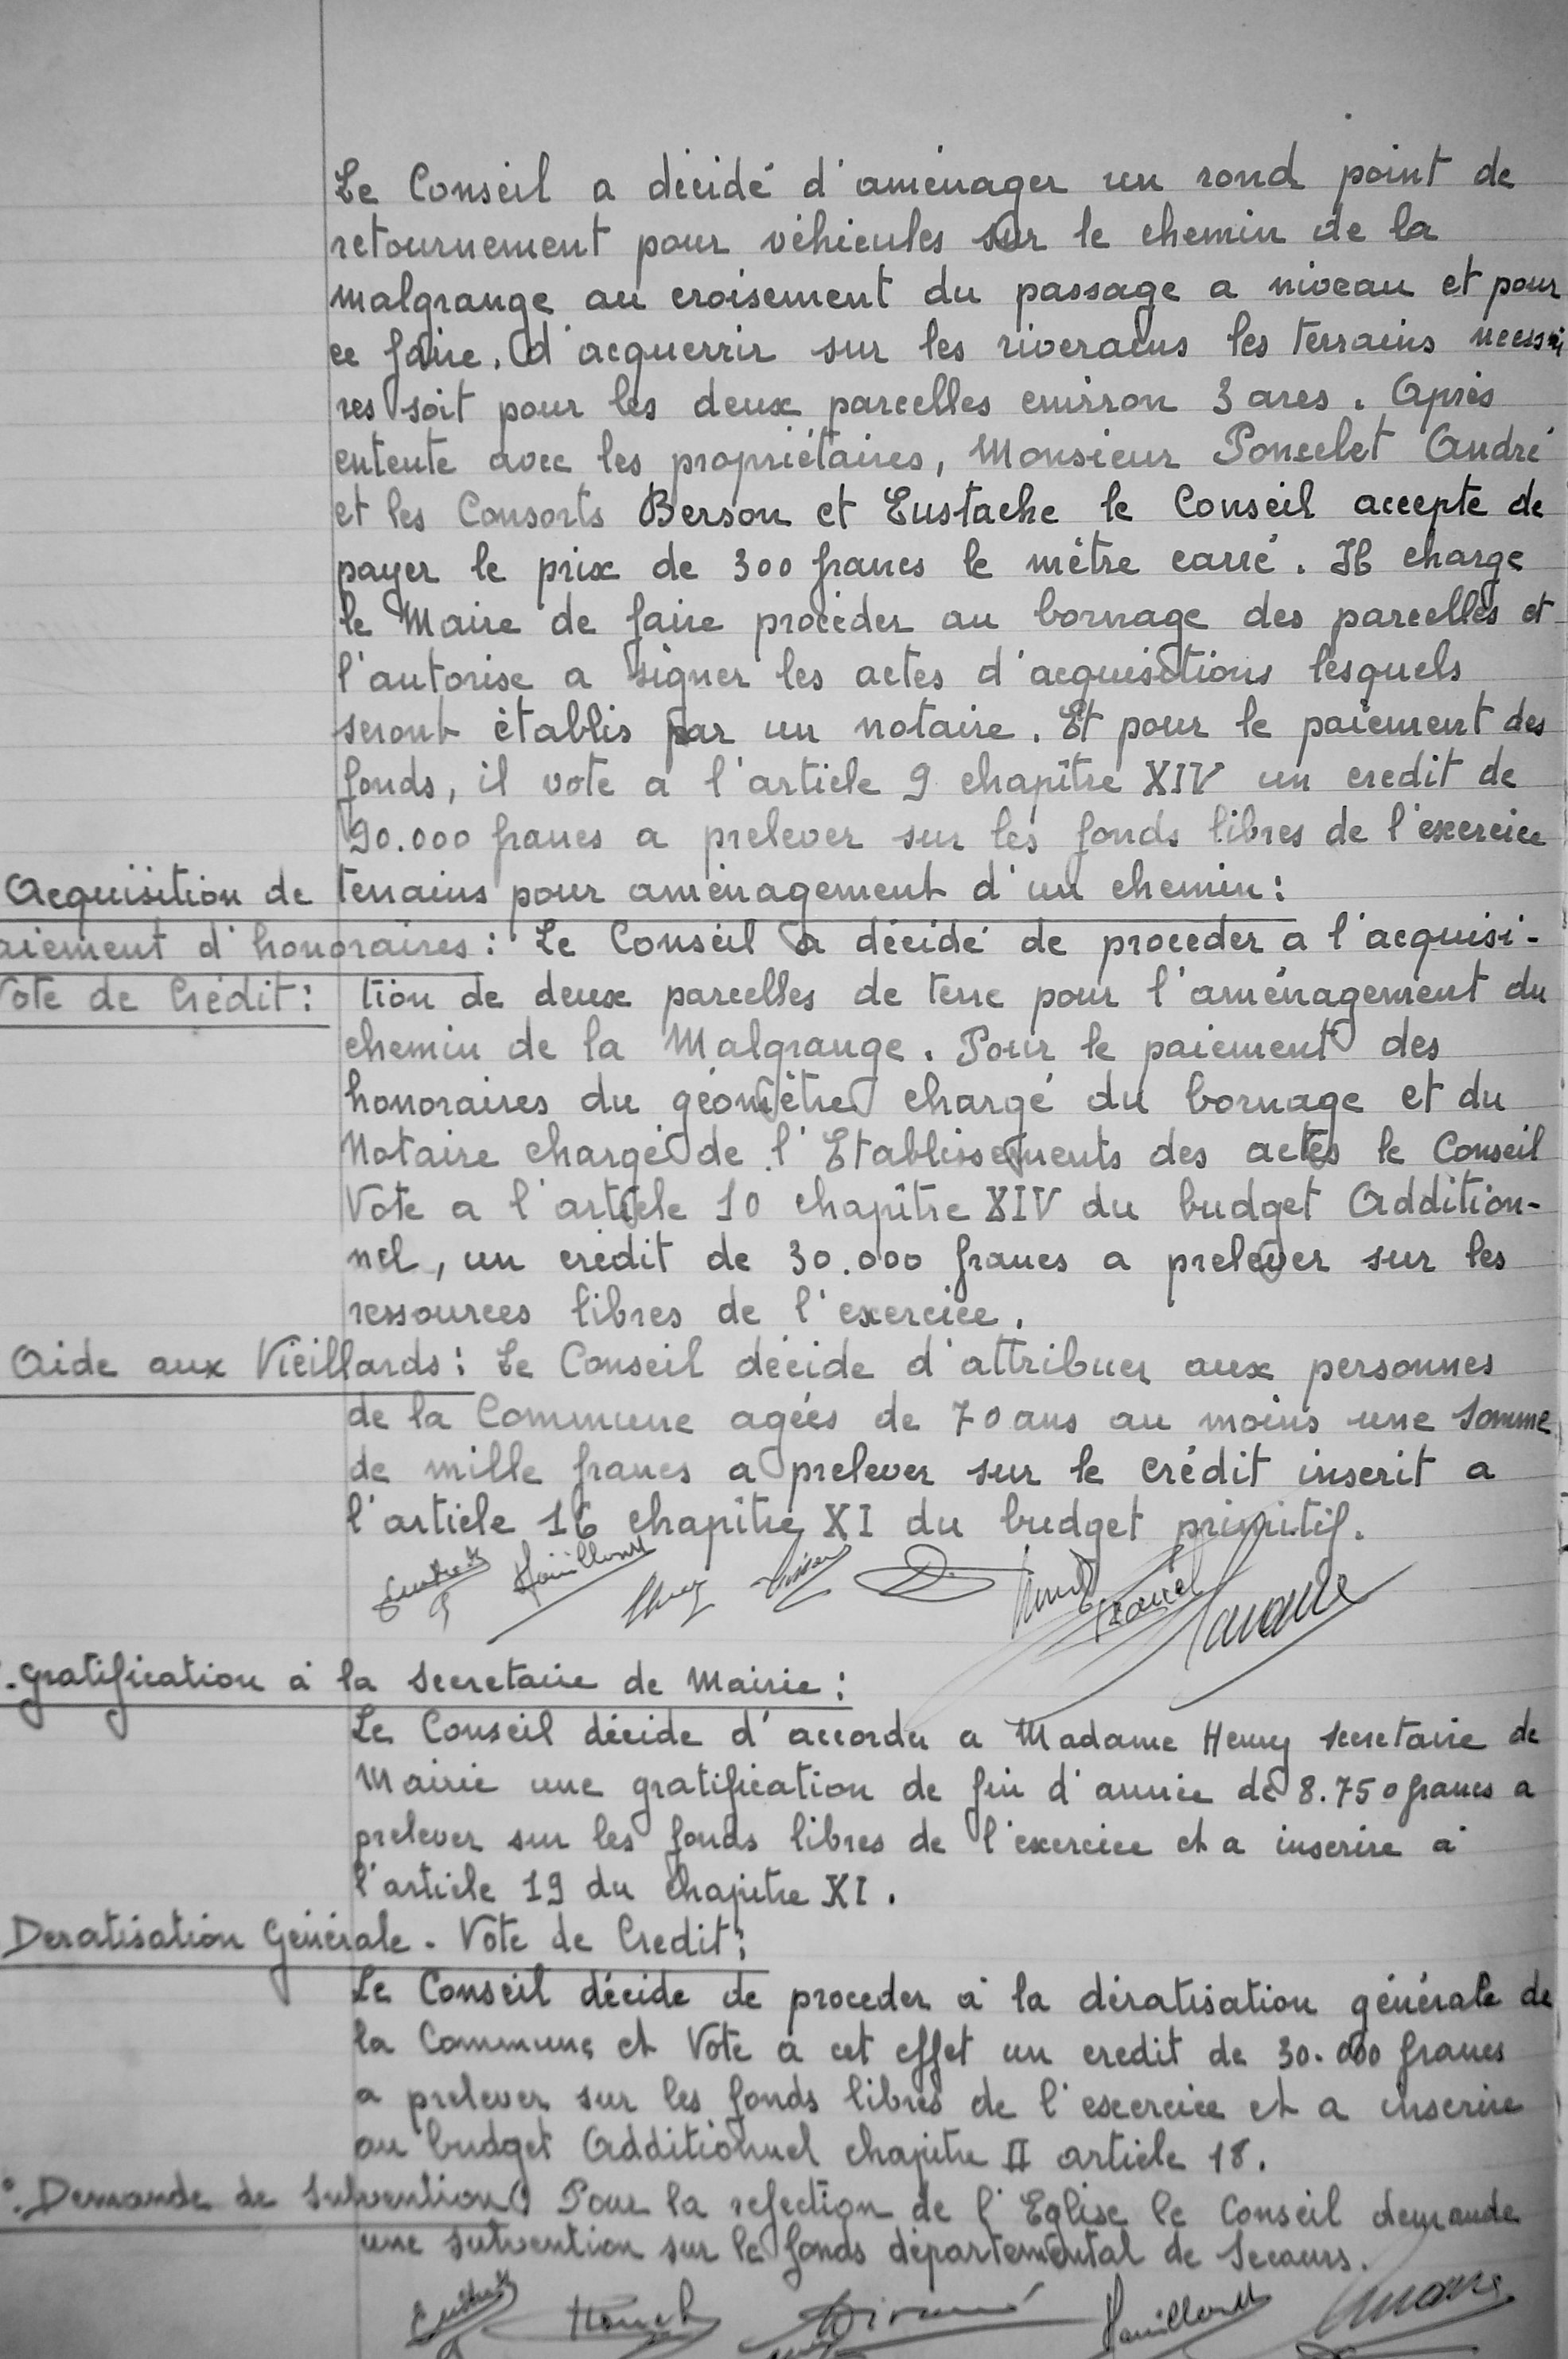 Le Conseil a décidé d'aménager un rond point de
retournement pour véhicules sur le chemin de la
malgrange au croisement du passage a niveau et pour
ce faire, d'acquerrir sur les riverains les terrains necessai
res soit pour les deux parcelles environ 3 ares. Après
entente avec les propriétaires, Monsieur Poncelet André
et les Consorts Berson et Eustache le Conseil accepte de
payer le prix de 300 francs le mètre carré. Il charge
le Maire de faire procéder au bornage des parcelles et
l'autorise a signer les actes d'acquisitions lesquels
seront établis par un notaire. Et pour le paiement des
fonds, il vote a l'article 9 chapitre XIV un credit de
90.000 francs a prelever sur les fonds libres de l'exercice
Acquisition de terrains pour aménagement d'un chemin:
aiement d'honoraires: Le Conseil a décidé de proceder a l'acquisi-
Vote de Crédit: tion de deux parcelles de terre pour l'aménagement du
chemin de la Malgrange. Pour le paiement des
honoraires du géomètre chargé du bornage et du
Notaire chargé de l'Etablissements des actes le Conseil
Vote a l'article 10 chapitre XIV du budget Addition-
nel, un crédit de 30.000 francs a prelever sur les
ressources libres de l'exercice.
Aide aux Vieillards: Le Conseil décide d'attribuer aux personnes
de la Commune agées de 70 ans au moins une somme
de mille francs a prelever sur le crédit inscrit a
l'article 16 chapitre XI du budget primitif.
Gratification à la secretaire de Mairie:
Le Conseil décide d'accorder a Madame Henry secretaire de
Mairie une gratification de fin d'année de 8.750 francs a
prelever sur les fonds libres de l'exercice et a inscrire à
l'article 19 du chapitre XI.
Deratisation Générale - Vote de Credit:
Le Conseil décide de proceder à la dératisation générale de
la Commune et Vote à cet effet un credit de 30.000 francs
a prelever sur les fonds libres de l'exercice et a inscrire
au budget Additionnel chapitre II article 18.
Demande de Subvention: Pour la refection de l'Eglise le Conseil demande
une subvention sur le fonds départemental de Secours.